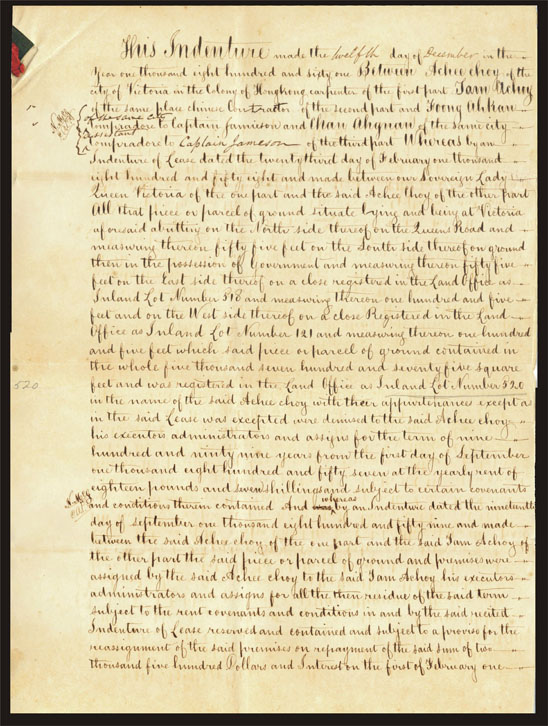 This Indenture made the twelfth day of December in the
Year one thousand eight hundred and sixty one Between Achee choy of the
city of Victoria in the Colony of Hongkong carpenter of the first part Tam Achoy
of the same place chinese Contractor of the second part and Foong Ahhan
of the same city
Compradore to Captain Jamieson and Chan Ahqwan of the same city
assistant
Compradore to Captain Jameson of the third part Whereas by an
Indenture of Lease dated the twenty third day of February one thousand
eight hundred and fifty eight and made between our Sovereign Lady
Queen Victoria of the one part and the said Achee Choy of the other part
All that piece or parcel of ground situate lying and being at Victoria
aforesaid abutting on the North side thereof on the Queens Road and
measuring thereon fifty five feet on the South side thereof on ground
then in the possession of Government and measuring thereon fifty five
feet on the East side thereof on a close registered in the Land Office as
Inland Lot Number 518 and measuring thereon one hundred and five
feet and on the West side thereof on a close Registered in the Land
Office as Inland Lot Number 121 and measuring thereon one hundred
and five feet which said piece or parcel of ground contained in
the whole five thousand seven hundred and seventy five square
520
feet and was registered in the Land Office as Inland Lot Number 520
in the name of the said Achee choy with their appurtenances except as
in the said Lease was excepted were demised to the said Achee choy
his executors administrators and assigns for the term of nine
hundred and ninety nine years from the first day of September
one thousand eight hundred and fifty seven at the yearly rent of
eighteen pounds and seven shillings and subject to certain covenants
whereas
and conditions therein contained And by an Indenture dated the nineteenth
day of september one thousand eight hundred and fifty nine and made
between the said Achee choy of the one part and the said Tam Achoy of
the other part the said piece or parcel of ground and premises were
assigned by the said Achee choy to the said Tam Achoy his executors
administrators and assigns for all the then residue of the said term
subject to the rent covenants and conditions in and by the said recited
Indenture of Lease reserved and contained and subject to a proviso for the
reassignment of the said premises on repayment of the said sum of two
thousand five hundred Dollars and Interest on the first of February one